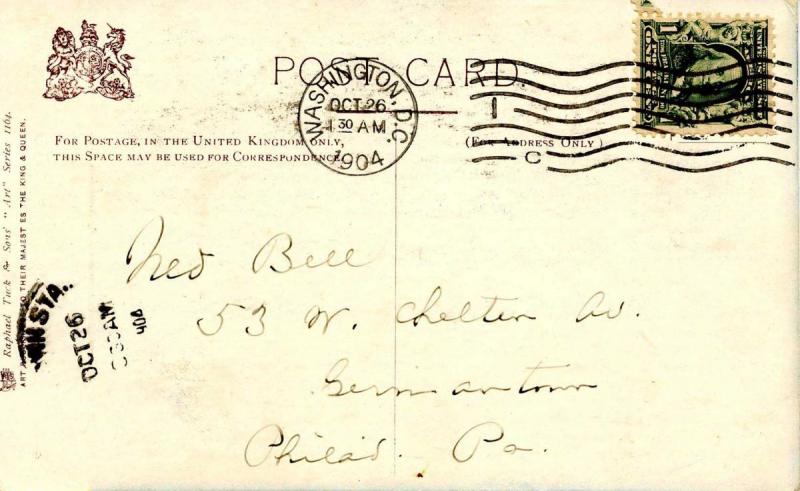 POST CARD
WASHINGTON, D.C.
OCT 26
1 30 AM
1904
1
C
FOR POSTAGE, IN THE UNITED KINGDOM ONLY,
THIS SPACE MAY BE USED FOR CORRESPONDENCE
(FOR ADDRESS ONLY)
Ned Bell
53 W. Chelten Av.
Germantown
Philad. Pa.
N STA.
OCT 26
AM
Raphael Tuck & Sons' "Art" Series 1164.
ART TO THEIR MAJESTIES THE KING & QUEEN.